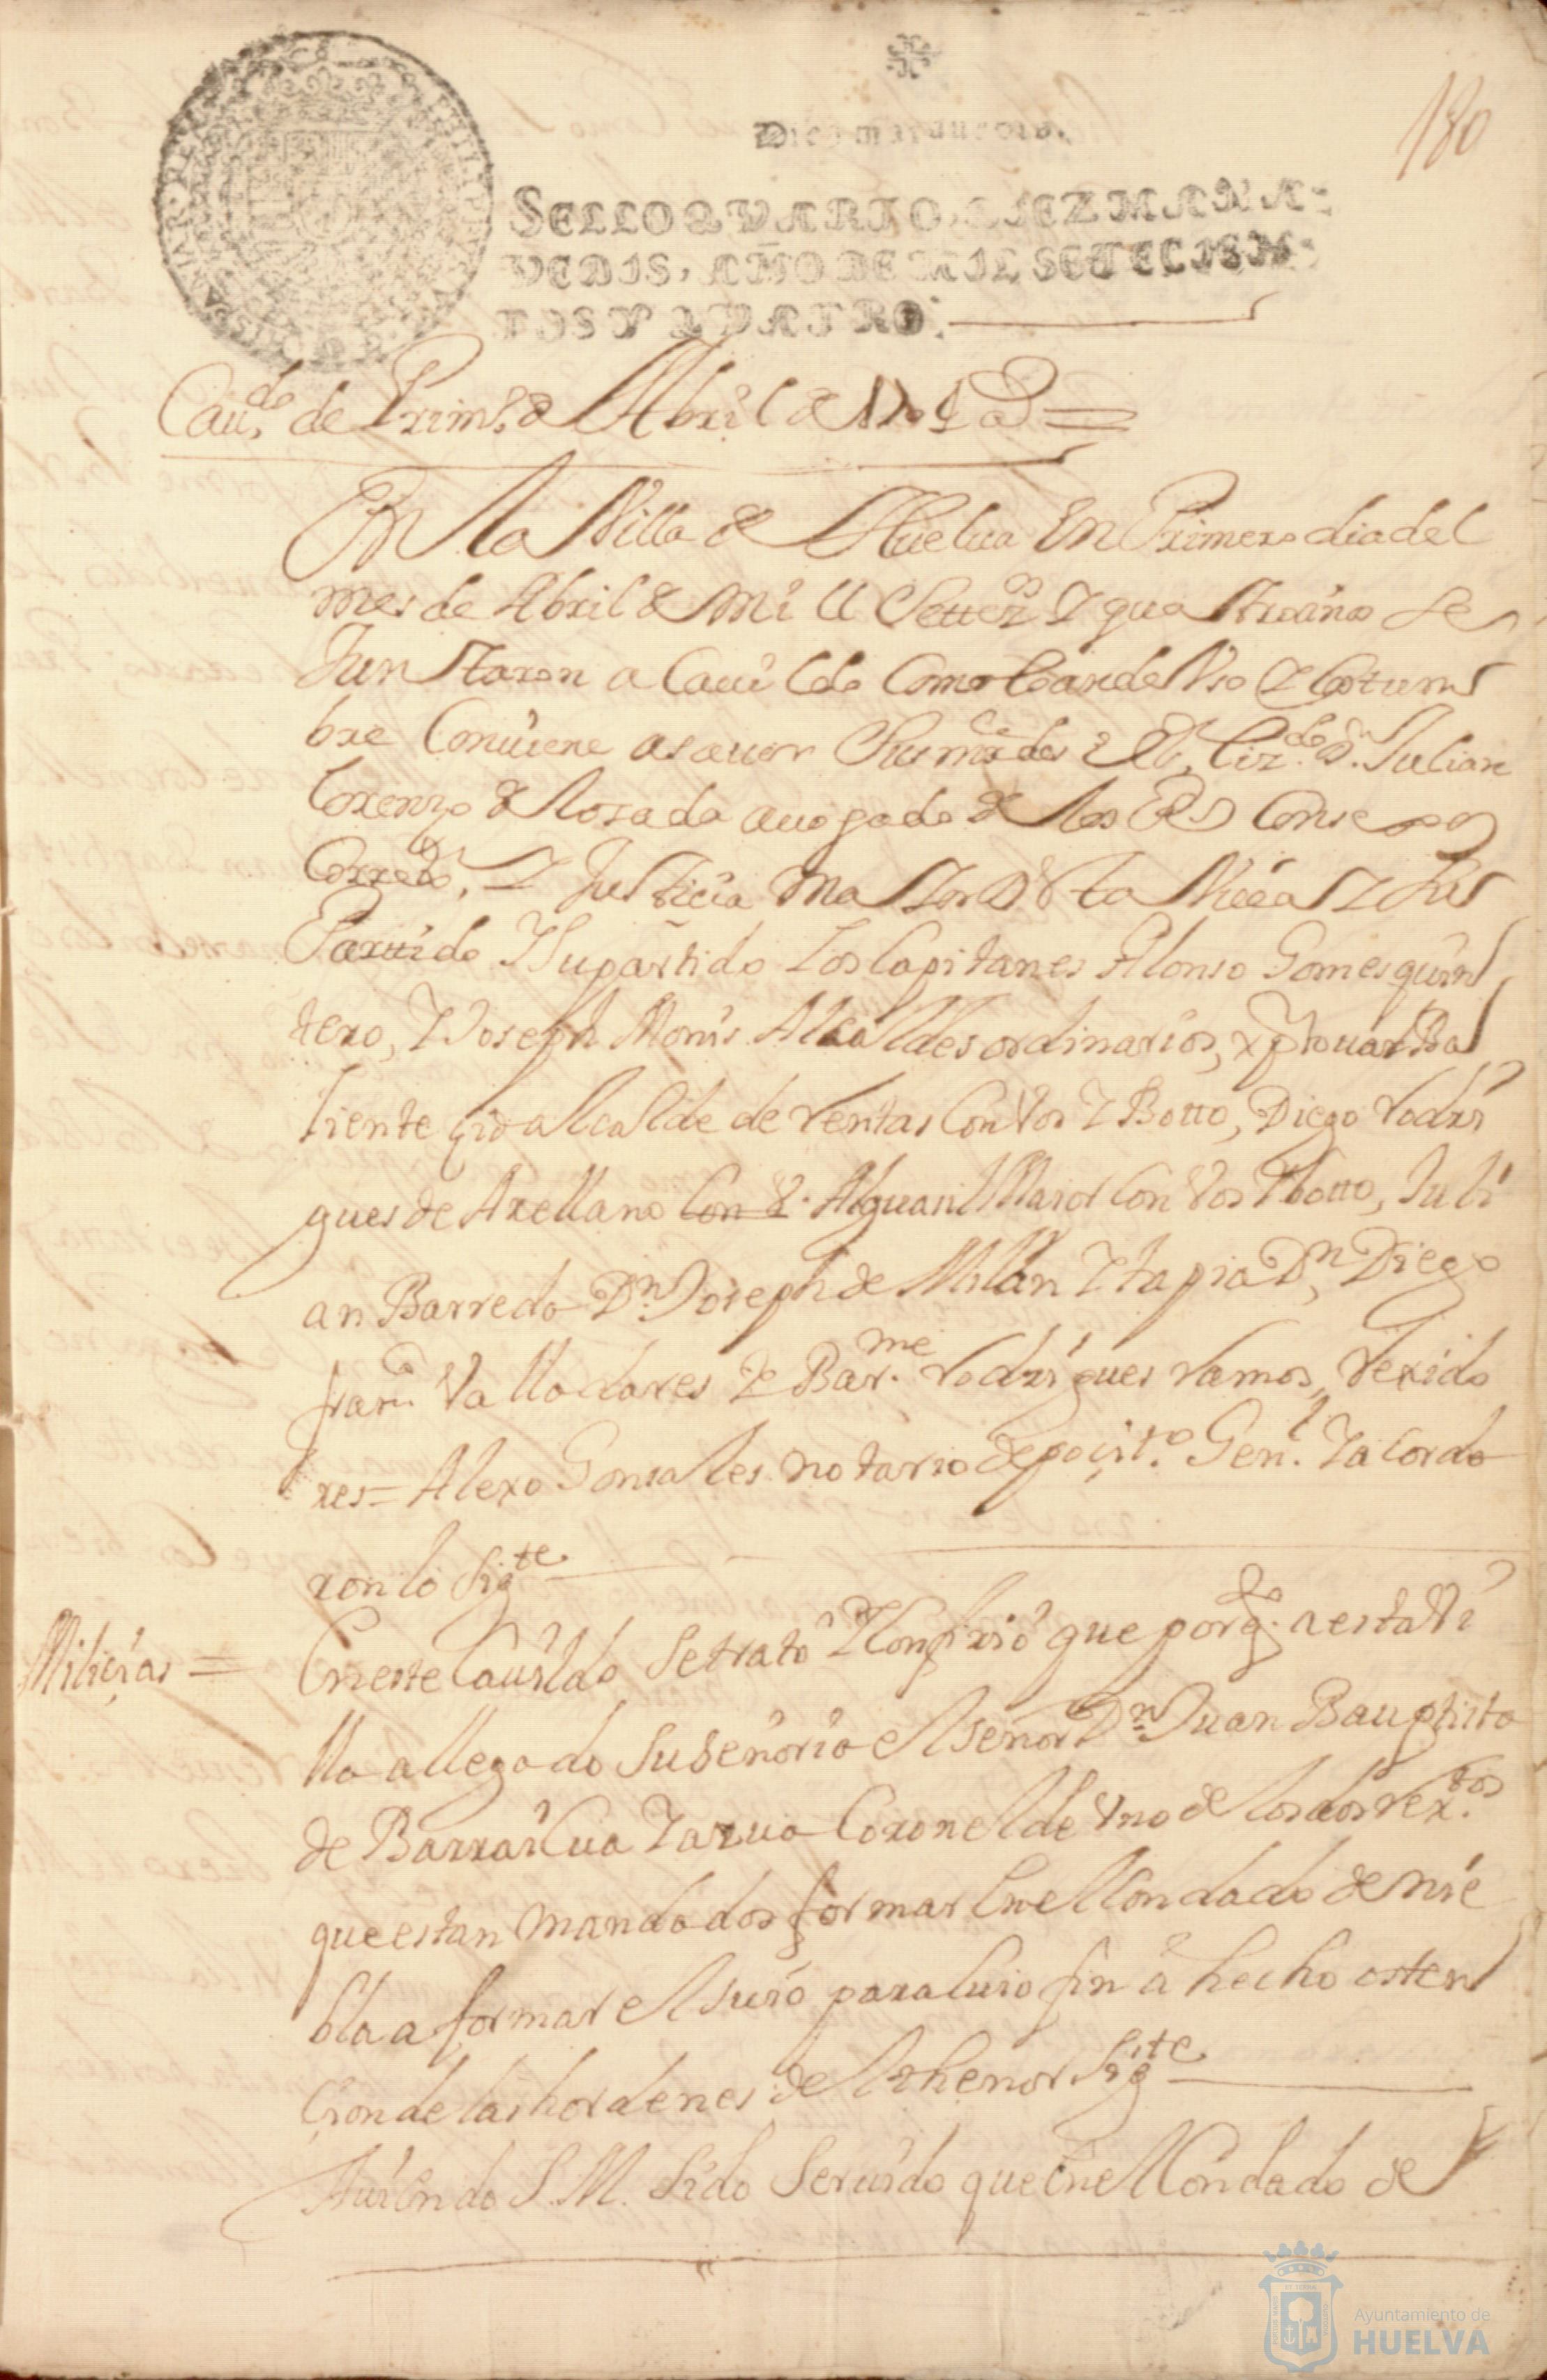 180
Diez marauedis.
SELLO QVARTO, DIEZ MARA-
VEDIS, AÑO DE MIL SETECIEN-
TOS Y QVATRO.
Cauдо de Primo de Abril de 1704 as
En la Villa de Huelua En Primero dia del
mes de Abril de mill Setteºs Y quatro años se
Junttaron a Cauildo Como lo an de Vso Y Costum
bre Conuiene a sauer Sus mrcedes El Lizdo Dn Julian
Lorenzo de Losada auogado de los Rs Conse
Corredor, Y Justicia Maior De sta Villa Y Su
Partido Y Su partido Y los Capitanes Alonso Gomes quin
tero, Y Joseph Monis Alcaldes ordinarios, xptoual Ba
liente fiz alcalde de Ventas Con Vos Y Botto, Diego Rodri
gues de Arellano Con V. Alguasil Maior Con Vos Y botto, Juli
an Barreda Dn Joseph de Millan Y tapia Dn Diego
franco Valladares Y Barme Rodrigues Ramos, Rexido
res = Alexo Gonsales notario depoçito Genl Y acorda
ron lo Sigte
Miliçias =
En este Cauildo Se trato Y Confirio que por qdo a esta Vi
lla a llegado Su Señoria el señor Dn Juan Bauptista
de Barrailua Y arua Coronel de Vno de los dos rextos
que estan mandados formar En el Condado de nie
bla a formar el suio para Cuio fin a hecho osten
çion de las hordenes del thenor Sigte
Auiendo S. M. Sido Seruido que En el Condado de
Ayuntamiento de
HUELVA